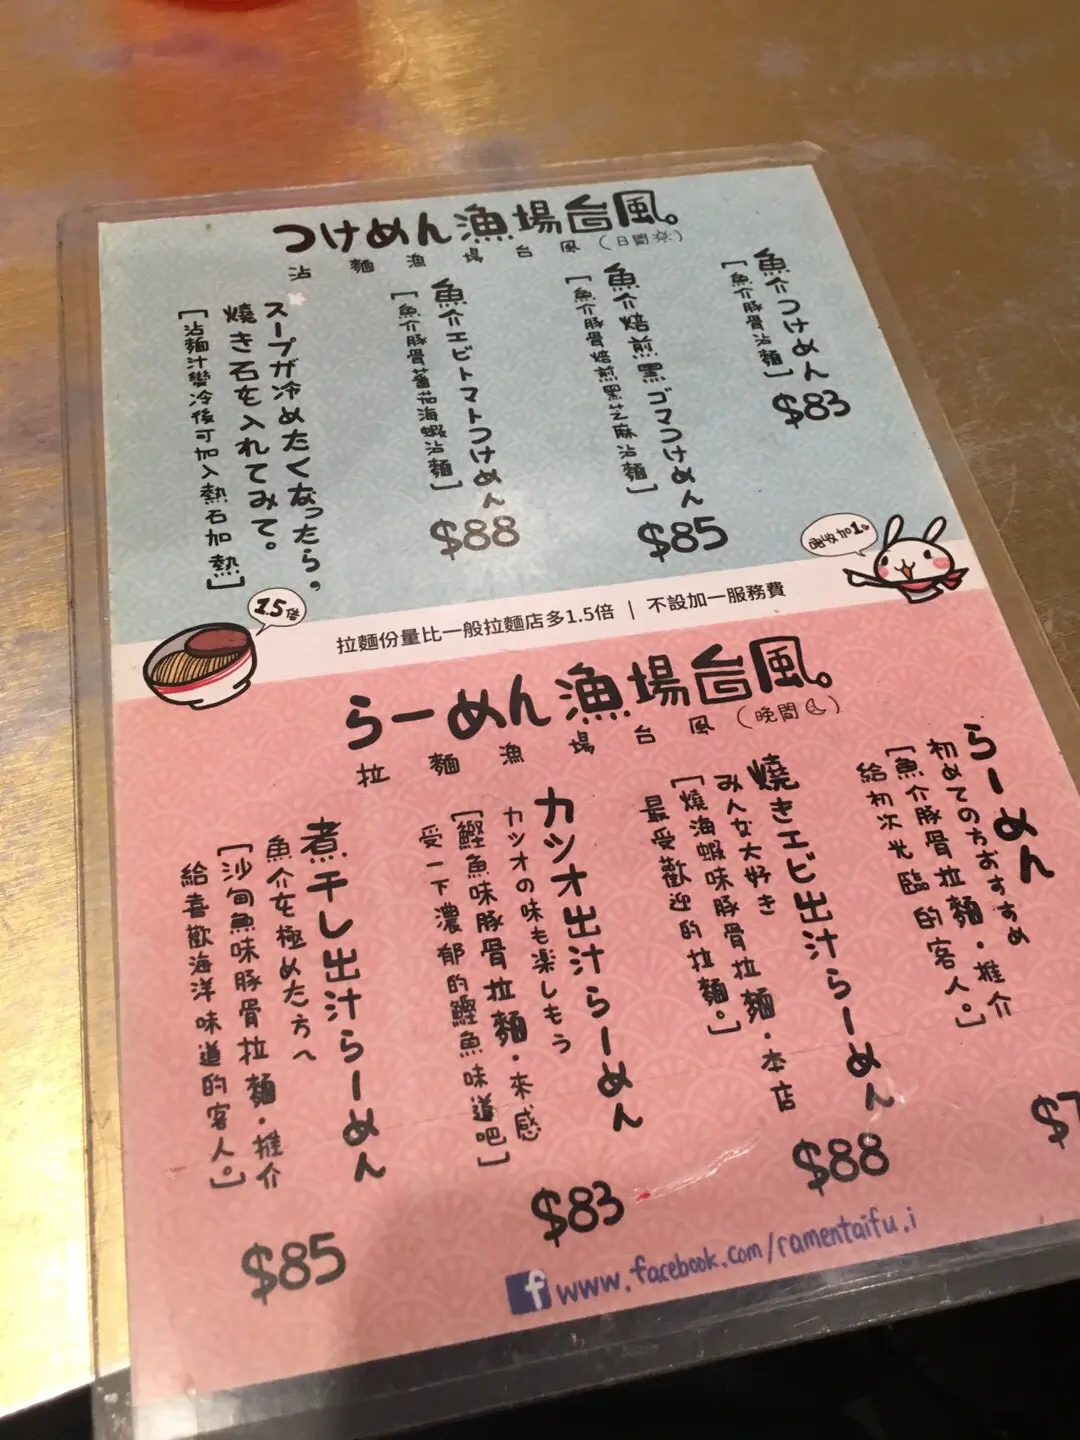 つけめん漁場台風。
沾麵漁場台風(日間)
魚介つけめん
[魚介豚骨沾麵]
$83
魚介焙煎黑ゴマつけめん
[魚介豚骨焙煎黑芝麻沾麵]
$85
魚介エビトマトつけめん
[魚介豚骨蕃茄海蝦沾麵]
$88
スープが冷めたくなったら。
燒き石を入れてみて。
[沾麵汁變冷後可加入熱石加熱]
1.5倍
拉麵份量比一般拉麵店多1.5倍 | 不設加一服務費
唔收加1。
らーめん漁場台風。
拉麵漁場台風(晚間)
らーめん
初めての方おすすめ
[魚介豚骨拉麵・推介
給初次光臨的客人。]
燒きエビ出汁らーめん
みんな大好き
[燒海蝦味豚骨拉麵・本店
最受歡迎的拉麵。]
$88
カツオ出汁らーめん
カツオの味も楽しもう
[鰹魚味豚骨拉麵・來感
受一下濃郁的鰹魚味道吧]
$83
煮干し出汁らーめん
魚介を極めた方へ
[沙甸魚味豚骨拉麵・推介
給喜歡海洋味道的客人。]
$85
f www.facebook.com/ramentaifu.i